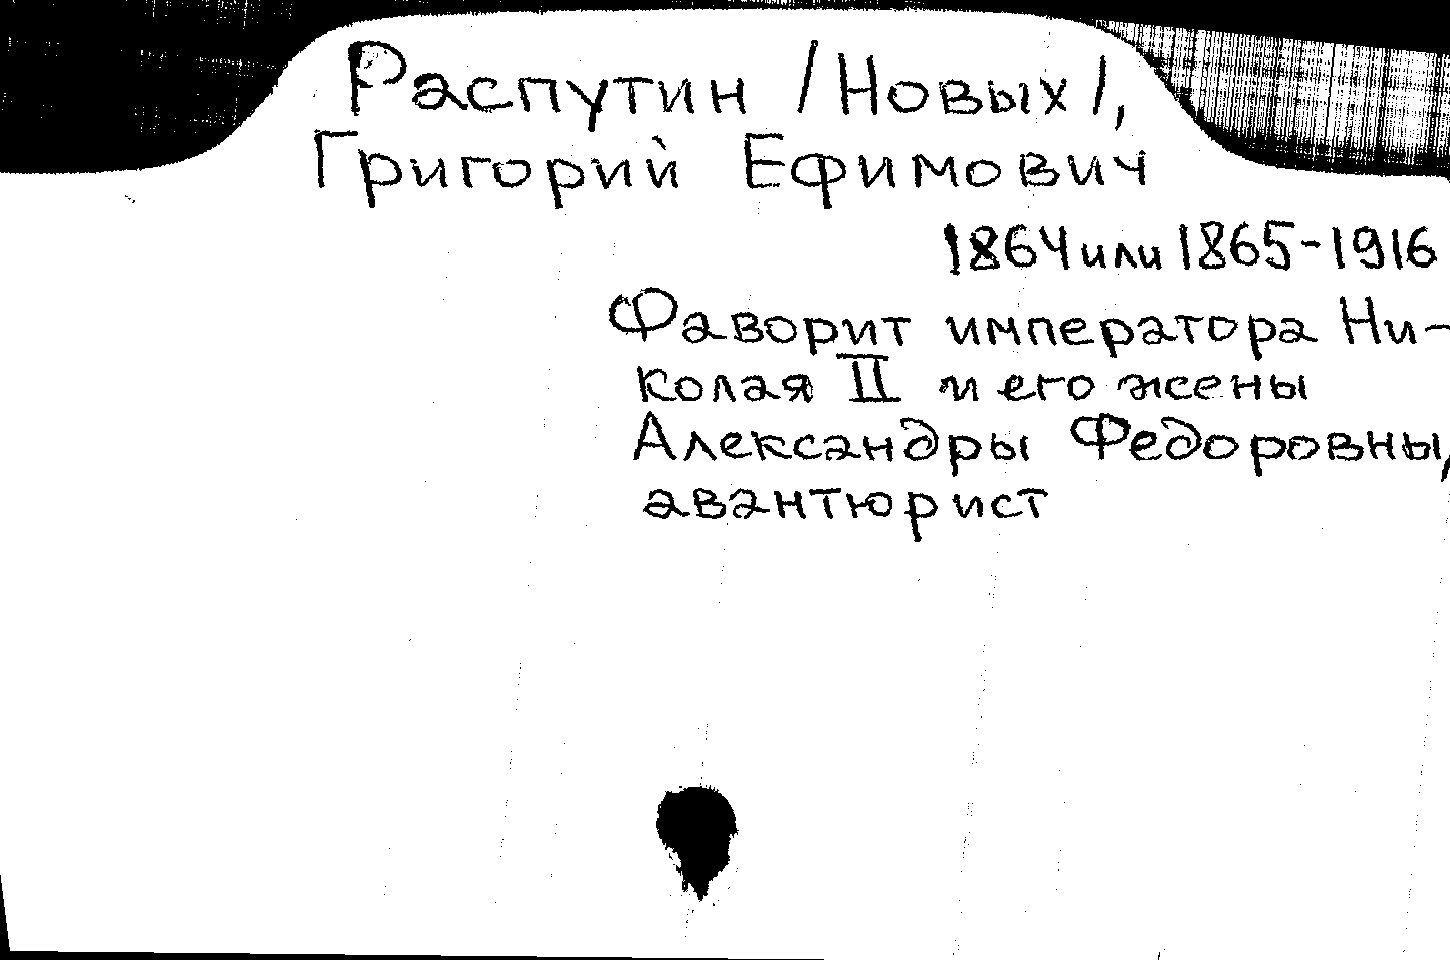 Распутин /Новых/,
Григорий Ефимович
1864 или 1865-1916
Фаворит императора Ни-
колая II и его жены
Александры Федоровны,
авантюрист